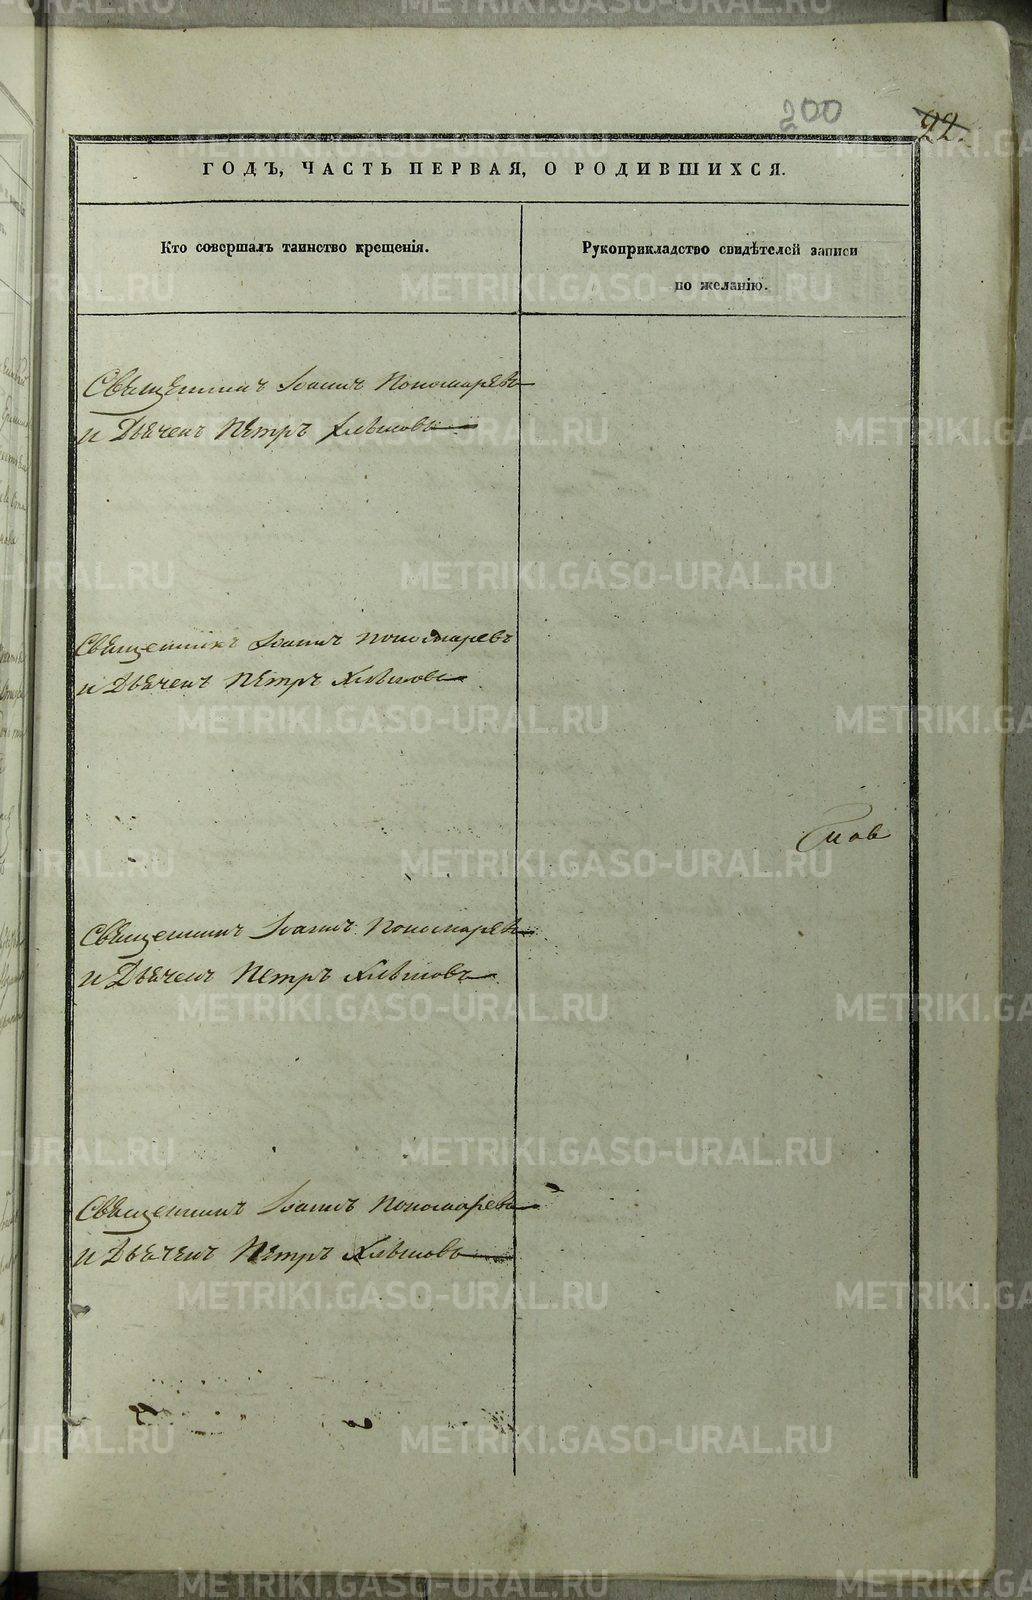 200
22.
ГОДЪ, ЧАСТЬ ПЕРВАЯ, О РОДИВШИХСЯ.
Кто совершалъ таинство крещенія.
Рукоприкладство свидѣтелей записи
по желанію.
Священникъ Іоаннъ Пономаревъ
и Дьячекъ Петръ Хлѣповъ
Священникъ Іоаннъ Пономаревъ
и Дьячекъ Петръ
Священникъ Іоаннъ Пономаревъ
и Дьячекъ Петръ
Священникъ Іоаннъ Пономаревъ
и Дьячекъ Петръ
METRIKI.GASO-URAL.RU